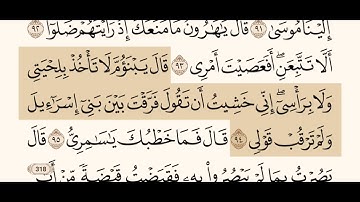 إِلَيْنَا مُوسَىٰ ٩١ قَالَ يَٰهَٰرُونُ مَا مَنَعَكَ إِذْ رَأَيْتَهُمْ ضَلُّوٓا۟ ٩٢
أَلَّا تَتَّبِعَنِ ۖ أَفَعَصَيْتَ أَمْرِى ٩٣ قَالَ يَبْنَؤُمَّ لَا تَأْخُذْ بِلِحْيَتِى
وَلَا بِرَأْسِىٓ ۖ إِنِّى خَشِيتُ أَن تَقُولَ فَرَّقْتَ بَيْنَ بَنِىٓ إِسْرَٰٓءِيلَ
وَلَمْ تَرْقُبْ قَوْلِى ٩٤ قَالَ فَمَا خَطْبُكَ يَٰسَٰمِرِىُّ ٩٥ قَالَ
318
بَصُرْتُ بِمَا لَمْ يَبْصُرُوا۟ بِهِۦ فَقَبَضْتُ قَبْضَةً مِّنْ أَثَ